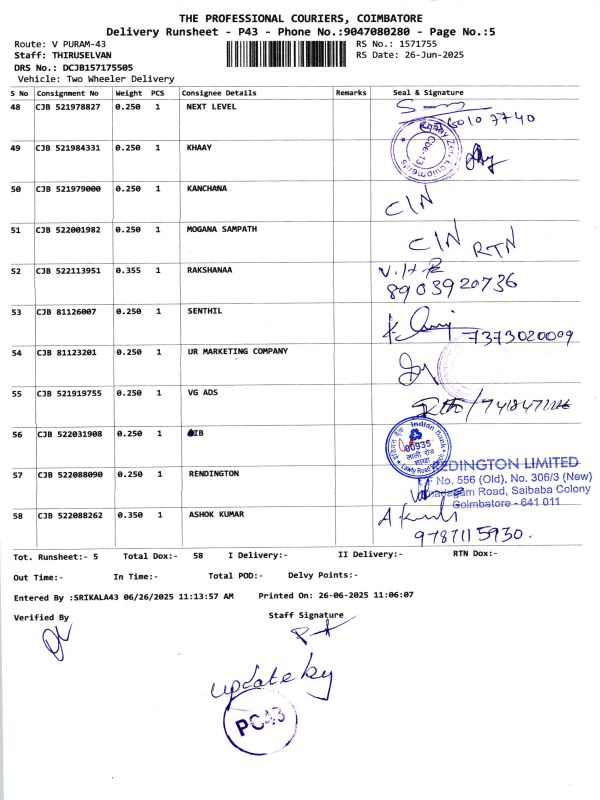 THE PROFESSIONAL COURIERS, COIMBATORE
Delivery Runsheet - P43 - Phone No.:9047080280 - Page No.:5
Route: V PURAM-43
RS No.: 1571755
Staff: THIRUSELVAN
RS Date: 26-Jun-2025
DRS No.: DCJB157175505
Vehicle: Two Wheeler Delivery
S No Consignment No Weight PCS Consignee Details Remarks Seal & Signature
48 CJB 521978827 0.250 1 NEXT LEVEL
49 CJB 521984331 0.250 1 KHAAY
50 CJB 521979000 0.250 1 KANCHANA C/N
51 CJB 522001982 0.250 1 MOGANA SAMPATH C/N RTN
52 CJB 522113951 0.355 1 RAKSHANAA
8903920736
53 CJB 81126007 0.250 1 SENTHIL 7373020009
54 CJB 81123201 0.250 1 UR MARKETING COMPANY
55 CJB 521919755 0.250 1 VG ADS
56 CJB 522031908 0.250 1 IB
Indian Bank
00935
57 CJB 522088090 0.250 1 RENDINGTON
EDINGTON LIMITED
No. 556 (Old), No. 306/3 (New)
Road, Saibaba Colony
Coimbatore - 641 011
58 CJB 522088262 0.350 1 ASHOK KUMAR
9787115930.
Tot. Runsheet:- 5 Total Dox:- 58 I Delivery:- II Delivery:- RTN Dox:-
Out Time:- In Time:- Total POD:- Delvy Points:-
Entered By :SRIKALA43 06/26/2025 11:13:57 AM Printed On: 26-06-2025 11:06:07
Verified By Staff Signature
update by
PC43